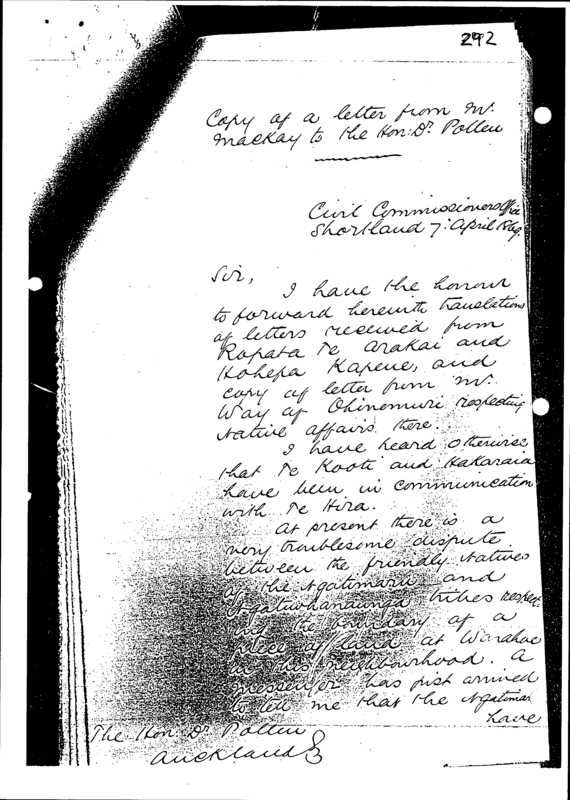 292
Copy of a letter from Mr.
Mackay to the Hon: Dr. Pollen
Civil Commissioners Office
Shortland 7: April 1869.
Sir,
I have the honour
to forward herewith translations
of letters received from
Ropata Te Arakai and
Hohepa Kapene, and
copy of letter from Mr.
Way of Ohinemuri respecting
Native affairs there.
I have heard otherwise
that Te Kooti and Hakaraia
have been in communication
with Te Hira.
At present there is a
very troublesome dispute
between the friendly Natives
of the Ngatimaru and
Ngatiwhanaunga tribes respect-
ing the boundary of a
piece of land at
in this neighbourhood. A
messenger has just arrived
to tell me that the Ngatimaru
have
The Hon: Dr. Pollen
Auckland